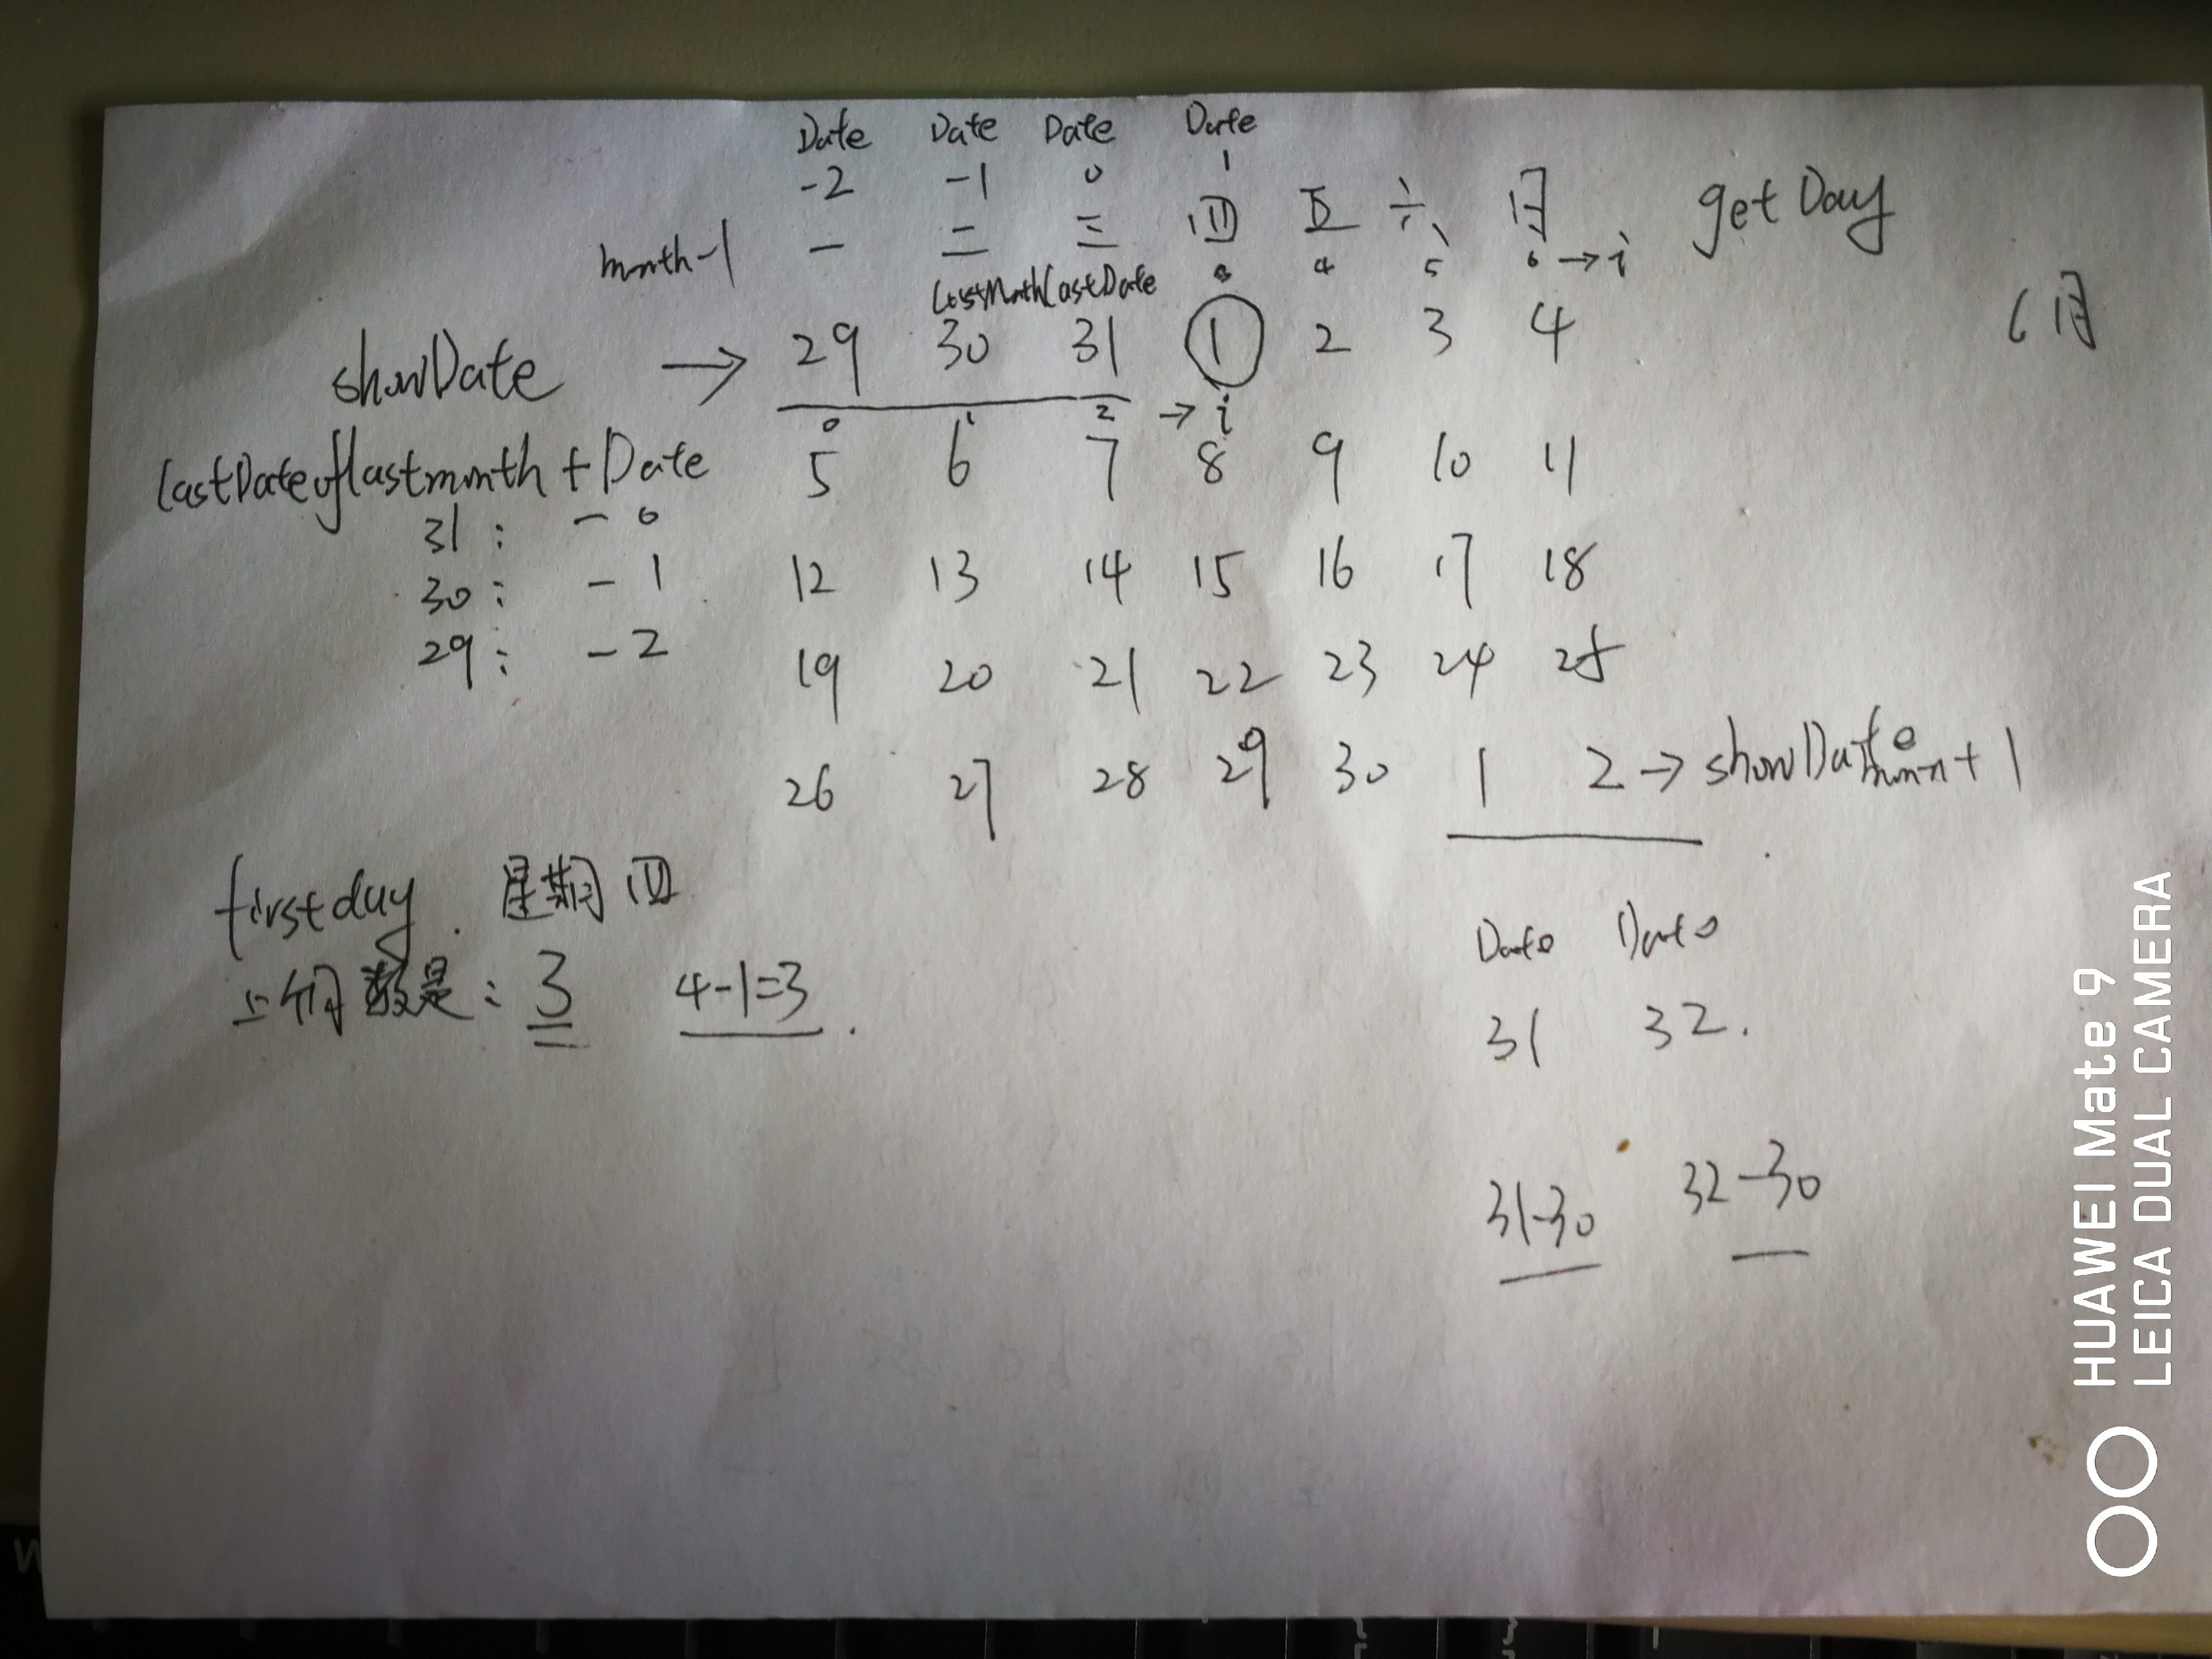 Date Date Date Date
-2 -1 0 1
month-1 一 二 三 四 五 六 日 getDay
3 4 5 6 → i
LastMonthLastDate
6月
showDate → 29 30 31 1 2 3 4
0 1 2 → i
lastDateoflastmonth + Date 5 6 7 8 9 10 11
31: - 0
30: - 1 12 13 14 15 16 17 18
29: - 2 19 20 21 22 23 24 25
26 27 28 29 30 1 2 → showDate + 1
firstday. 星期四
上份数是: 3 4-1=3.
Date Date
31 32.
31-30 32-30
HUAWEI Mate 9
LEICA DUAL CAMERA